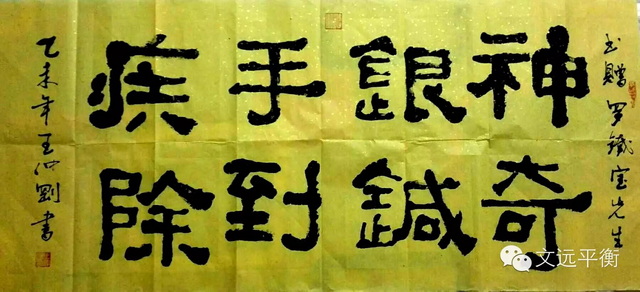 书赠罗铁宝先生
神奇
银针
手到
疾除
乙未年王心刚书
文远平衡